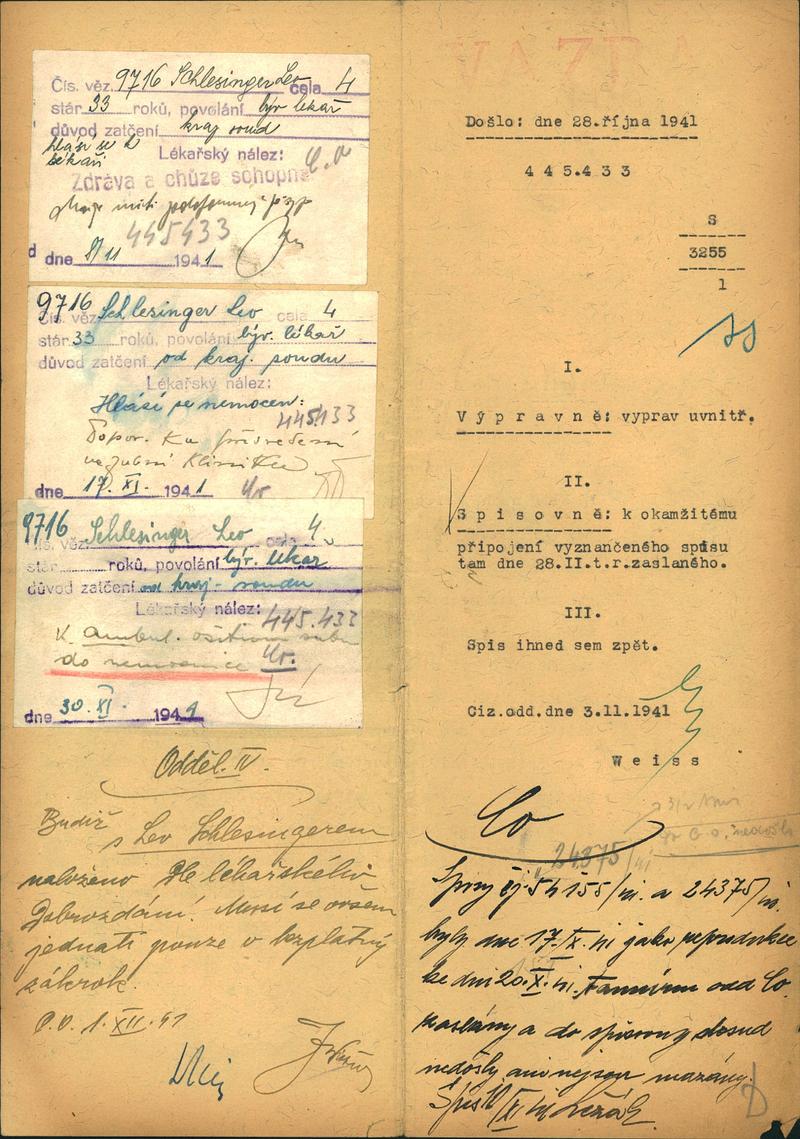 Čís. věz. 9716 Schlesinger Leo cela 4
stár 33 roků, povolání býv lékař
důvod zatčení kraj soud
hlásí se k
lékaři
Lékařský nález:
Zdráva a chůze schopna
445433
dne 8/11 1941
9716 Schlesinger Leo cela 4
Čís. věz.
stár 33 roků, povolání býv. lékař
důvod zatčení od kraj. soudu
Lékařský nález:
Hlásí se nemocen:
445433
Dopor. ku přivedení
na zubní kliniku
dne 17. XI. 1941
9716 Schlesinger Leo cela 4
čís. věz.
stár roků, povolání býv. lékař
důvod zatčení od kraj. soudu
Lékařský nález:
445.433
K ambul. ošetření
do nemocnice
dne 30. XI. 1941
Odděl. IV.
Budiž
s Leo Schlesingerem
naloženo dle lékařského
dobrozdání. Musí se ovšem
jednati pouze o bezplatný
zákrok.
P.O. 1. XII. 41
VAZBA
Došlo: dne 28.října 1941
445.433
S
3255
1
I.
Výpravně: vyprav uvnitř.
II.
Spisovně: k okamžitému
připojení vyznančeného spisu
tam dne 28.II.t.r.zaslaného.
III.
Spis ihned sem zpět.
Ciz.odd.dne 3.11.1941
Weiss
Co
24375/41
Spisy čj 54155/41. a 24375/41.
byly dne 17. X. 41 jako reprodukce
ke dni 20. X. 41. odd Co.
zaslány a do spisovny dosud
nedošly ani nejsou